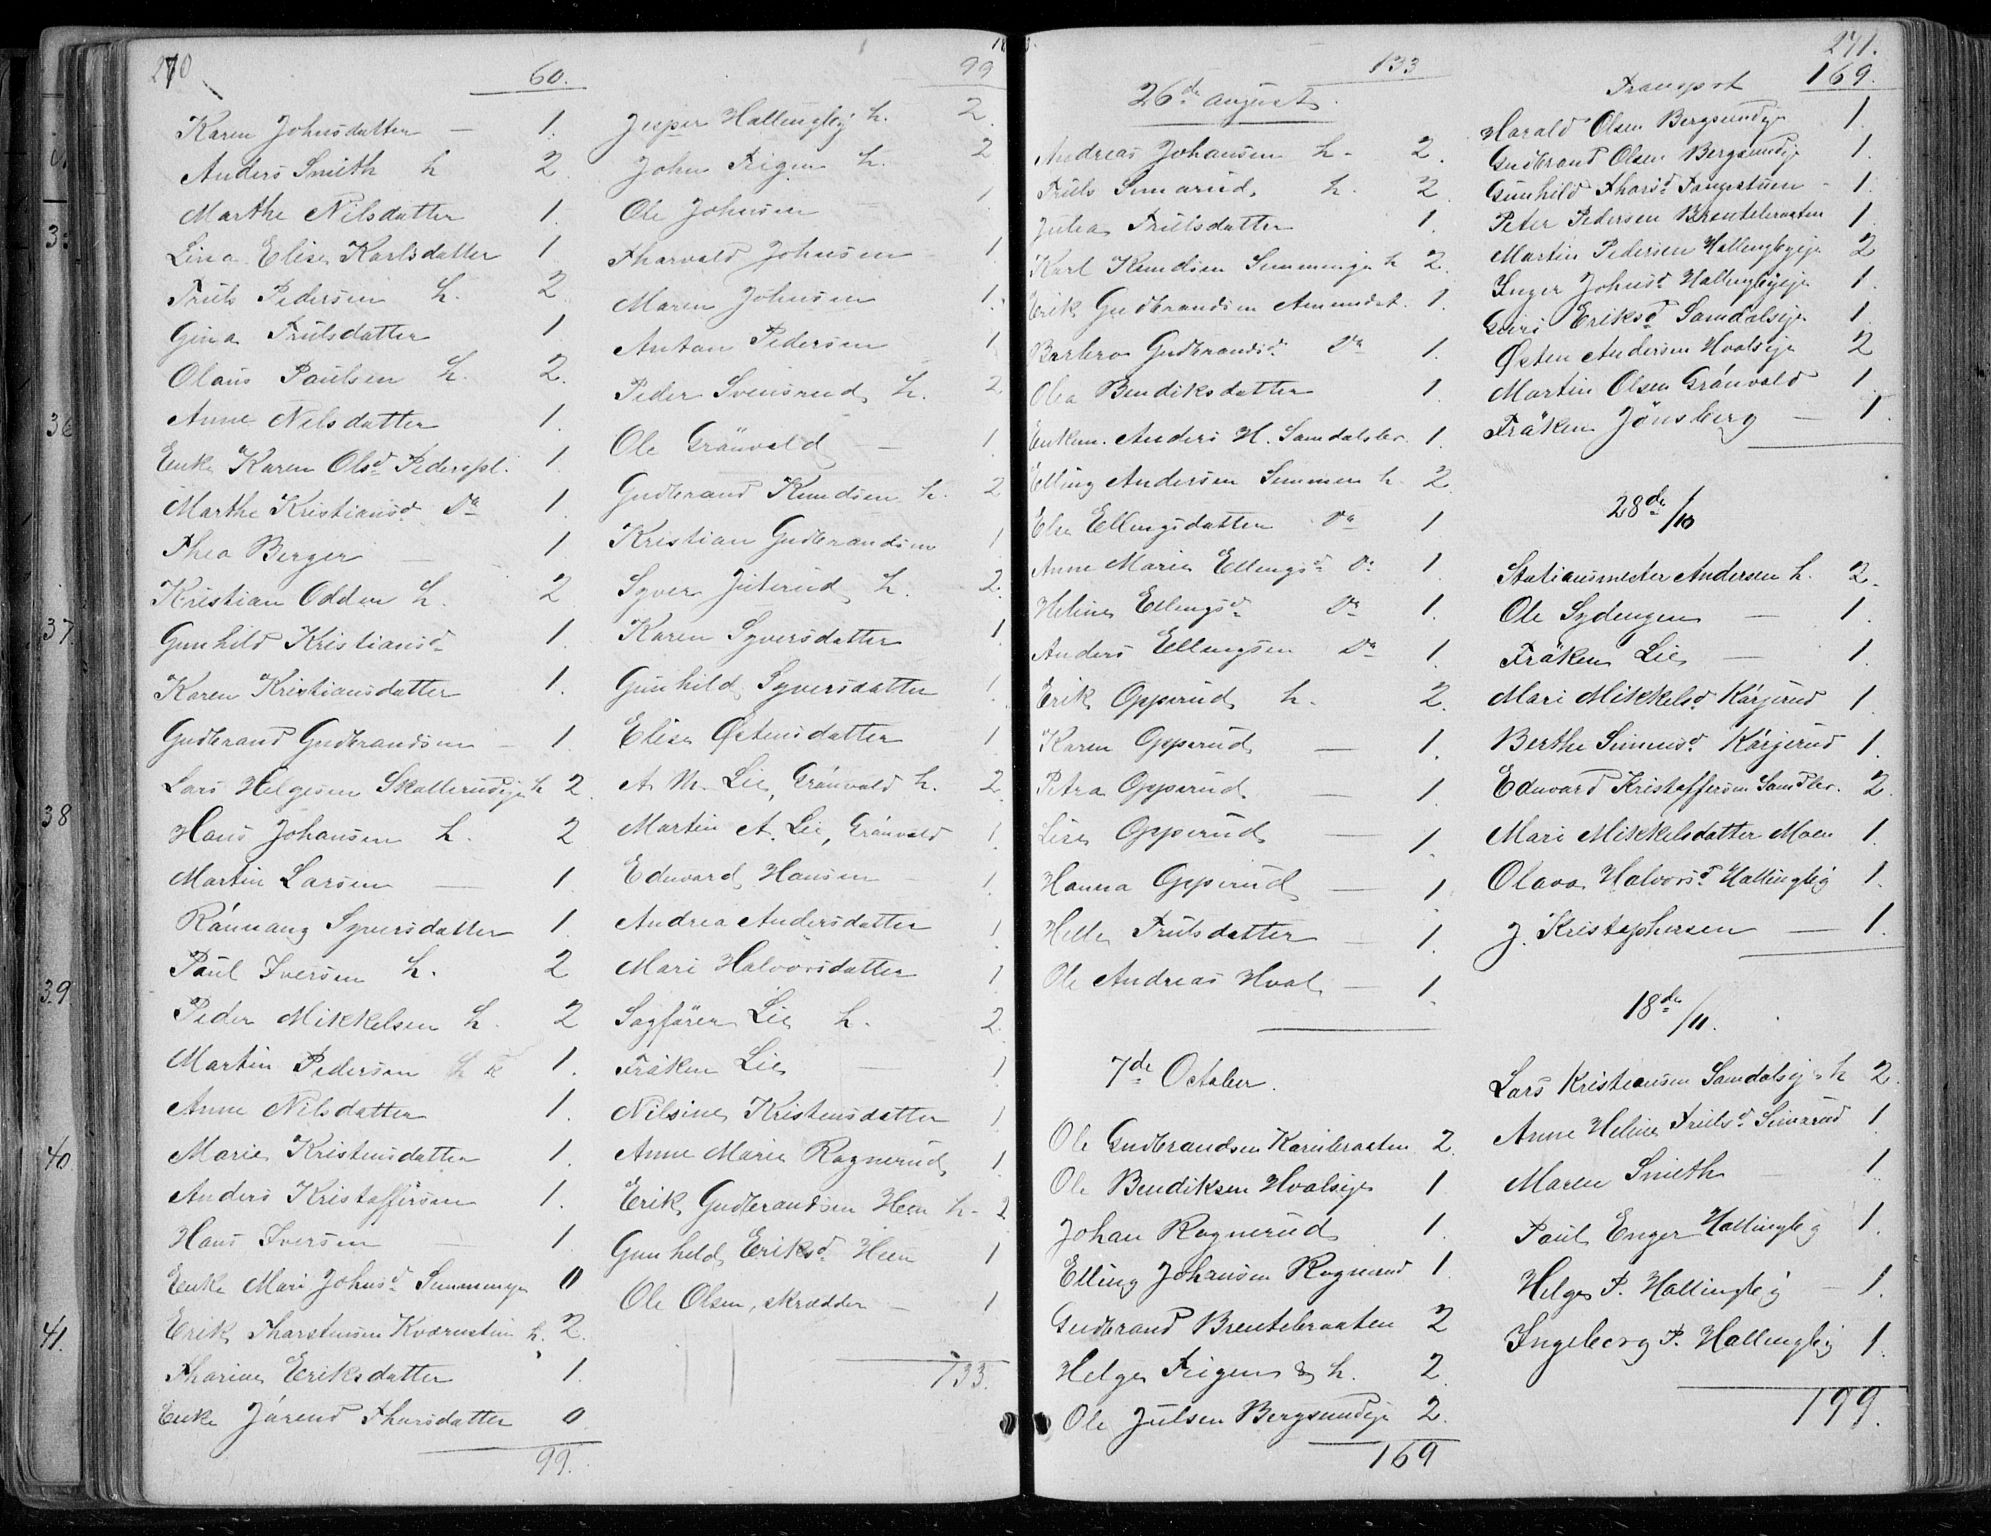 270
60.
Karen Johnsdatter — 1.
Anders Smith h 2.
Marthe Nilsdatter 1.
Lina Elise Karlsdatter 1.
Truls Pedersen h. 2.
Gina Trulsdatter 1.
Olaus Paulsen h. 2.
Anne Nilsdatter 1.
Enke Karen Olsd. Pederspl. 1.
Marthe Kristiansd. Do 1.
Thea Berger — 1.
Kristian Odden h. 2
Gunhild Kristiansd. 1.
Karen Kristiansdatter 1.
Gudbrand Gudbrandsen — 1.
Lars Helgesen Skallerudeje h 2.
Hans Johansen h. 2
Martin Larsen — 1.
Rönnaug Syversdatter 1.
Paul Iversen h. 2
Peder Mikkelsen h. 2
Martin Pedersen 1.
Anne Nilsdatter 1.
Marie Kristensdatter 1.
Anders Kristoffersen 1.
Hans Iversen — 1.
Enke Mari Johnsd. 0
Erik Tharstensen h. 2.
Tharine Eriksdatter 1.
Enke Jörend Tharsdatter 0
99.
99
Jesper Hallingby h. 2.
John Teigen h. 2
Ole Johnsen — 1
Tharvald Johnsen 1
Maren Johnsen 1.
Anton Pedersen 1
Peder Svensrud h. 2
Ole Grönvold — 1
Gudbrand Knudsen h. 2
Kristian Gudbrandsen 1
Syver Juterud h. 2.
Karen Syversdatter 1
Gunhild Syversdatter 1
Elise Østensdatter 1
A. M. Lie, Grönvold h. 2
Martin A. Lie, Grönvold 1
Edevard Hansen 1
Andrea Andersdatter 1
Mari Halvorsdatter 1
Sagförer Lie h. 2.
Fröken Lie — 1
Nilsine Kristensdatter 1
Anne Marie Rognerud 1
Erik Gudbrandsen Heen h. 2
Gunhild Eriksd. Heen 1
Ole Olsen, skrædder — 1
133.
133
26de august.
Andreas Johansen h. 2.
Truls Simarud h. 2
Julea Trulsdatter 1.
Karl Knudsen h 2.
Erik Gudbrandsen 1.
Barbro Gudbrandsd. Do 1.
Olea Bendiksdatter 1.
Enkem. Anders H. 1.
Elling Andersen Semmen h. 2.
Else Ellingsdatter Do 1
Anne Marie Ellingsd. Do 1.
Heline Ellingsd. Do 1.
Anders Ellingsen Do 1.
Erik Opperud h. 2.
Karen Opperud — 1.
Petra Opperud — 1.
Lise Opperud — 1.
Hanna Opperud — 1
Helle Trulsdatter — 1.
Ole Andreas Hval — 1.
7de October.
Ole Gudbrandsen Karibraaten 2.
Ole Bendiksen Hvalseje 1.
Johan Rognerud 1.
Elling Johansen Rognerud 1.
Gudbrand Brentebraaten 2
Helge Teigen & h. 2.
Ole Julsen Bergsundeje 2.
169
271.
Transport 169.
Harald Olsen Bergsundeje 1.
Gudbrand Olsen Bergsundeje 1.
Gunhild Tharsd. 1.
Peter Pedersen Brentebraaten 1.
Martin Pedersen Hallingbyeje 2
Inger Johnsd. Hallingbyeje 1.
Guri Eriksd. Samdalseje 1.
Østen Andersen Hvalseje 2
Martin Olsen Grönvold 1.
Fröken Jönsberg — 1.
28de/10
Stationsmester Andersen h. 2.
Ole Sydengen — 1.
Fröken Lie — 1.
Mari Mikkelsd. Körjerud 1.
Berthe Simensd. Körjerud 1.
Edevard Kristoffersen 2.
Mari Mikkelsdatter Moen 1.
Olava Halvorsd. Hallingby 1.
J. Kristophersen — 1.
18de/11.
Lars Kristiansen Samdalseje h 2.
Anne Heline Trulsd. Simarud 1.
Maren Smith — 1.
Paul Enger Hallingby 1.
Helge P. Hallingby 1.
Ingeborg P. Hallingby 1.
199.
36
37.
38
39.
40.
41.